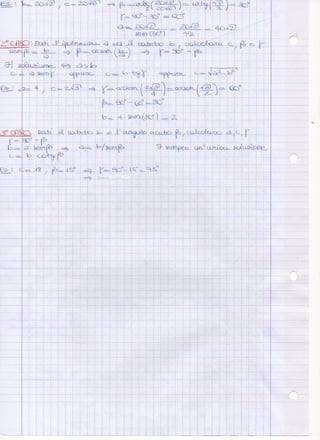 Es: b= 20√2 , c = 20√6 ⇒ β = arctg (20√2/20√6) = arctg (√3/3) = 30°
γ = 90° - 30° = 60°
a = 20√2/sen(30°) = 20√2/1/2 = 40√2
2° CASO: Dati l'ipotenusa a ed il cateto b, calcolare c, β e γ
senβ = b/a ⇒ β = arcsen(b/a) ⇒ γ = 90° - β
∃! soluzione ⇔ a > b
c = a senγ oppure c = b tgγ oppure c = √a²-b²
Es: a = 4 , c = 2√3 ⇒ γ = arcsen (2√3/4) = arcsen (√3/2) = 60°
β = 90° - 60° = 30°
b = 4 sen(30°) = 2
3° CASO Dati il cateto b e l'angolo acuto β, calcolare a, c, γ
γ = 90° - β
b = a senβ ⇒ a = b/senβ ∃ sempre un'unica soluzione
c = b cotgβ
Es: = 18 , β = 15° ⇒ γ = 90° - 15° = 75°